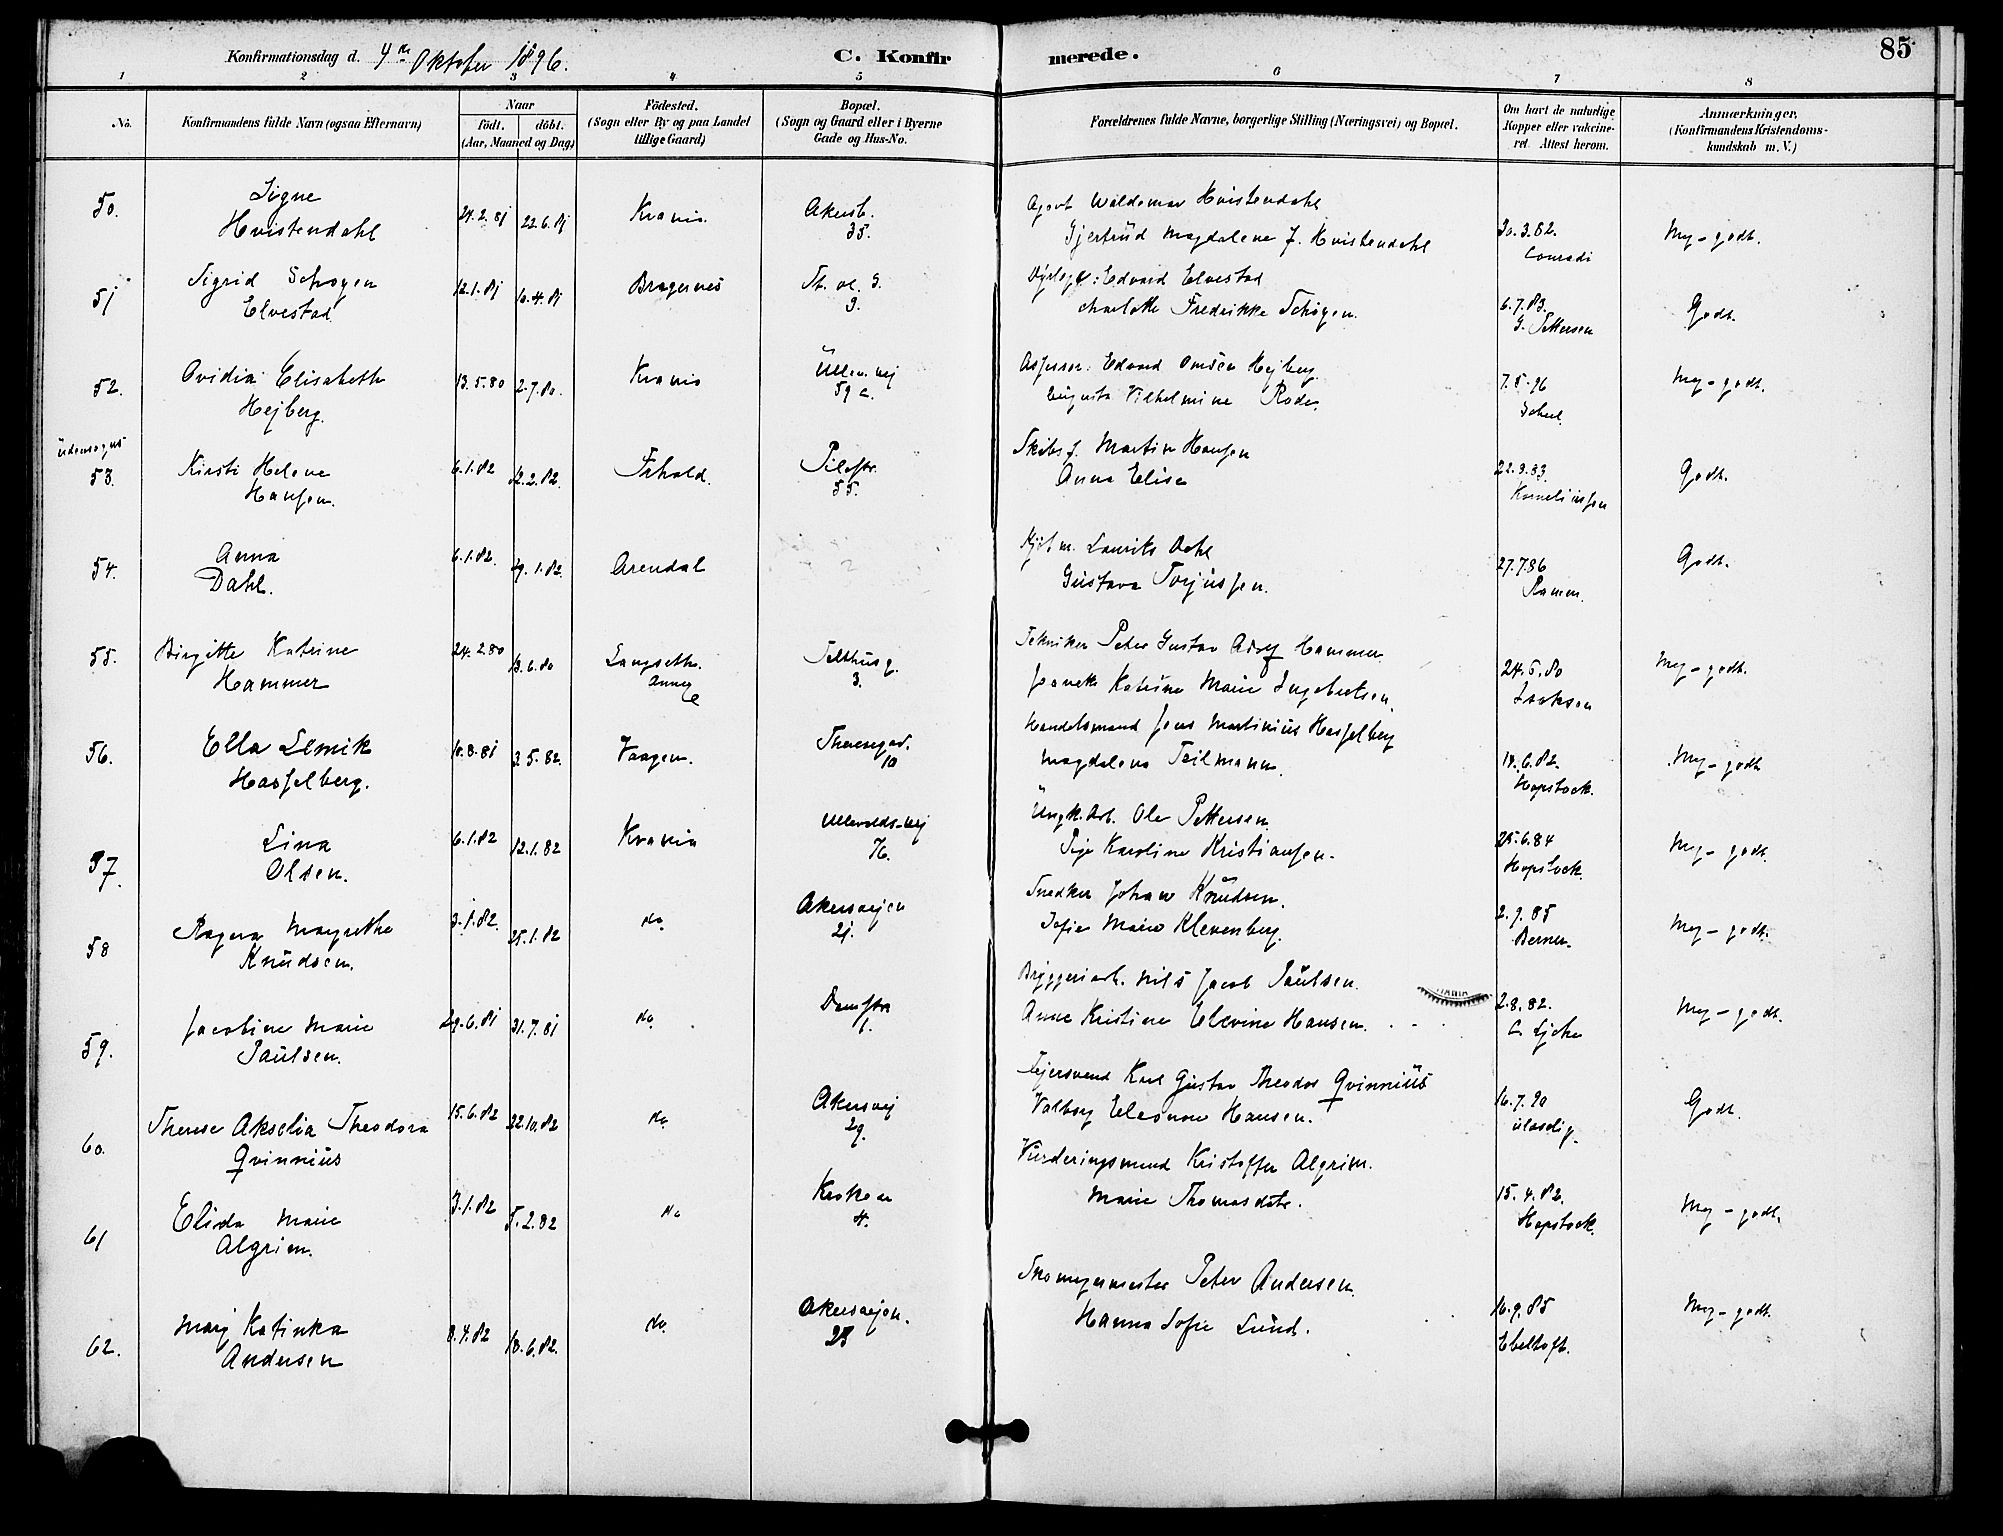 Konfirmationsdag d. 4de Oktober 1896. C. Konfirmerede. 85
1 2 3 4 5 6 7 8
No. Konfirmandens fulde Navn (ogsaa Efternavn) Naar födt. döbt. (Aar, Maaned og Dag) Födested. (Sogn eller By og paa Landet tillige Gaard) Bopæl. (Sogn og Gaard eller i Byerne Gade og Hus-No. Forældrenes fulde Navne, borgerlige Stilling (Næringsvei) og Bopæl. Om havt de naturlige Kopper eller vakcineret. Attest herom. Anmærkninger, (Konfirmandens Kristendomskundskab m. V.)
50. Signe 24.2.81 22.6.81 Krania. Akersb. 35. Agent Waldemar Hvistendahl 30.3.82. Meg-godt.
Hvistendahl Gjertrud Magdalene J. Hvistendahl Conradi
51 Sigrid Schøyen 12.1.81 10.4.81 Bragernes St. ol. G. 3. Edvard Elvestad 6.7.83. Godt.
Elvestad Charlotte Fredrikke Schøyen. G. Pettersen
52. Ovidia Elisabeth 13.5.80 2.7.80. Krania Ullev. vej 59 c. Assessor. Edvard Omsén Hejberg 7.5.96 Meg-godt.
Hejberg. Augusta Vilhelmine Rode. Scheel.
udensogns
53. Kirsti Helene 6.1.82 12.2.82. Frhald. Pilestr. 55. Skibsf. Martin Hansen 22.9.83. Godt.
Hansen. Anna Elise Korneliussen
54. Anna 6.1.82. 29.1.82. Arendal Kjøbm. Laurits Dahl 27.7.86 Godt.
Dahl. Gustava Torjussen. Ramm.
55. Birgitte Katrine 24.2.80 13.6.80 Langseth. annex Telthusg. 3. Tekniker Peter Gustav Adolf Hammer 24.5.80 Meg-godt.
Hammer Jeanette Katrine Marie Ingebretsen. Isaksen
56. Ella Lemik 10.8.81 3.5.82. Vaagen. Theresegad. 10 Handelsmand Jens Martinius Hasselberg 19.6.82. Meg-godt
Hasselberg. Magdalena Teilmann. Hopstock.
57. Lina 6.1.82 12.1.82 Krania Ullevolds-vej 76. Ungk. Arb. Ole Pettersen. 25.6.84 Meg-godt.
Olsen. Pige Karoline Kristiansen. Hopstock.
58 Ragna Margrethe 3.1.82. 25.1.82 do. Akersvejen 21. Snedker Johan Knudsen. 2.9.85 Meg-godt.
Knudsen. Sofie Marie Klevenberg. Berner.
59. Jacobine Marie 29.6.81 31.7.81 do. Damstr. 1. Bryggeriarb. Nils Jacob Paulsen. 2.8.82. Meg-godt.
Paulsen. Anne Kristine Elevine Hansen.
60. Therese Akselia Theodora 15.6.82 22.10.82 do. Akersvej 29. Karl Gustav Theodor Qvinnius 16.7.90 Godt.
Qvinnius Valborg Eleonore Hansen. ulæselig.
61 Elida Marie 3.1.82 5.2.82 do Kroken 4. Vurderingsmand Kristoffer Algrim. 15.4.82. Meg-godt.
Algrim. Marie Thomasdatr. Hopstock.
62. Marj Katinka 8.4.82 18.6.82. do. Akersvejen. 28 Skomagermester Peter Andersen. 16.9.85 Meg-godt.
Andersen Hanna Sofie Lund. Ebeltoft.